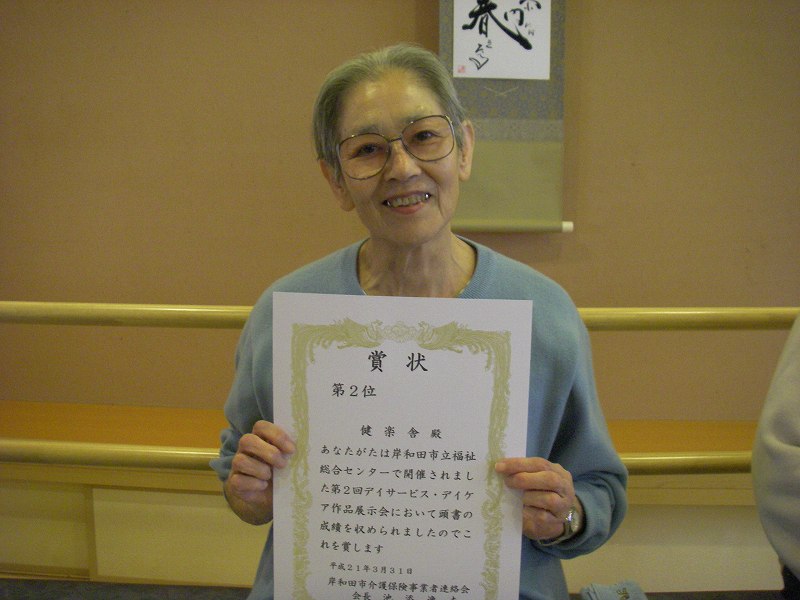 春
賞状
第2位
健楽舎殿
あなたがたは岸和田市立福祉
総合センターで開催されまし
た第2回デイサービス・デイケ
ア作品展示会において頭書の
成績を収められましたのでこ
れを賞します
平成21年3月31日
岸和田市介護保険事業者連絡会
会長